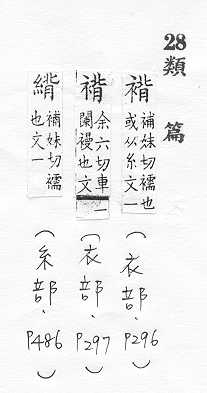 28
類篇
褙
補妹切襦也
或从糸文一
(衣部 P296)
余六切車
闌也文一
(衣部、P297)
補妹切襦
也文一
(糸部、P486)